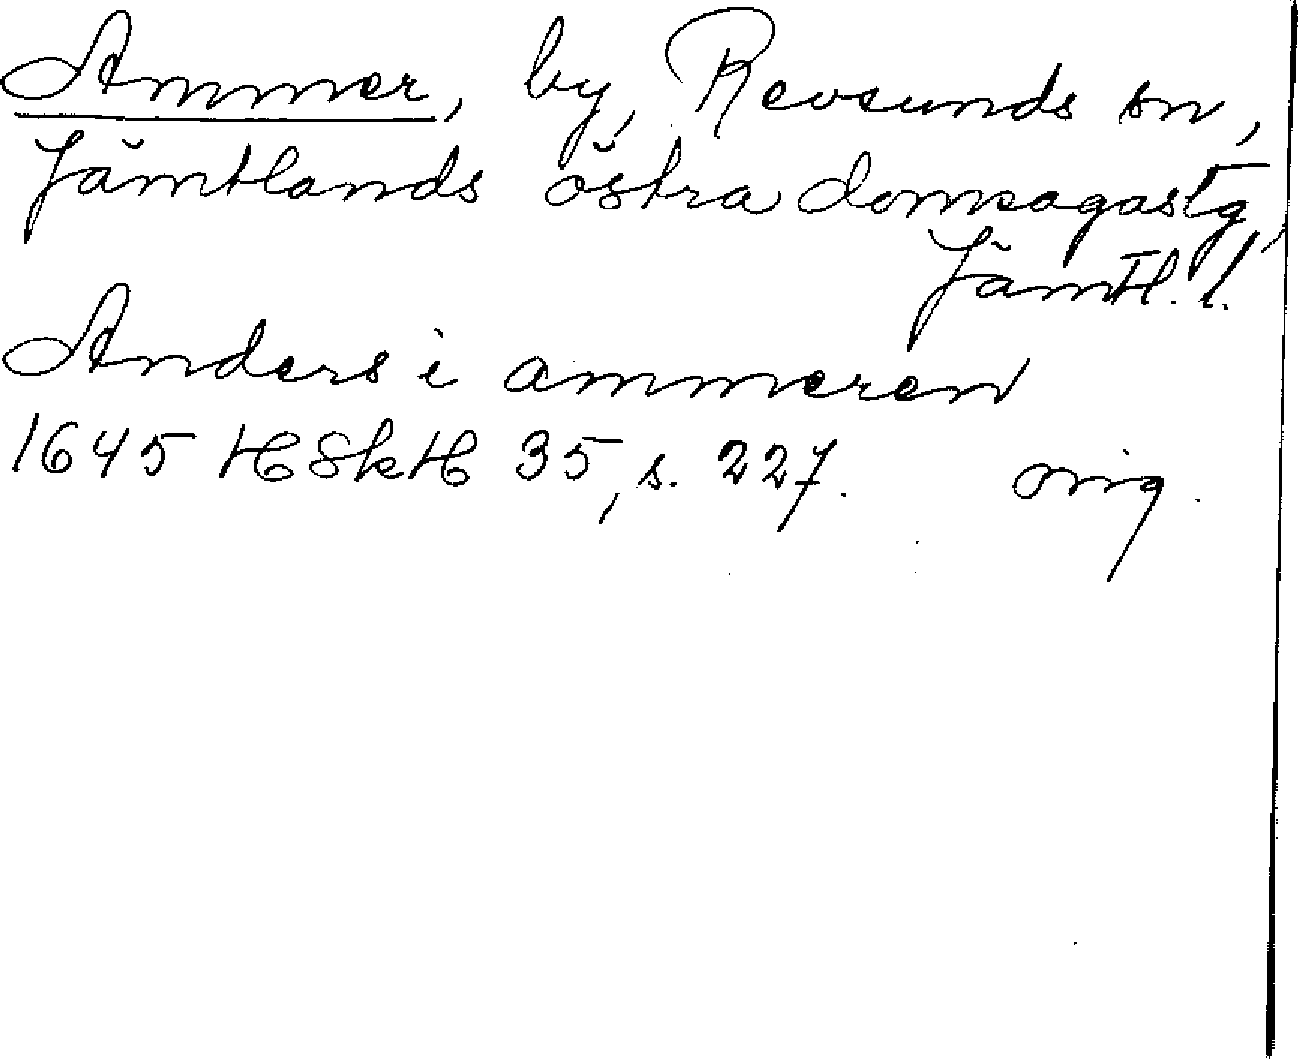 Ammer, by, Revsunds sn,
Jämtlands östra domsagas tg,
Jämtl. l.
Anders i ammeren
1645 HSkH 35, s. 227. orig.